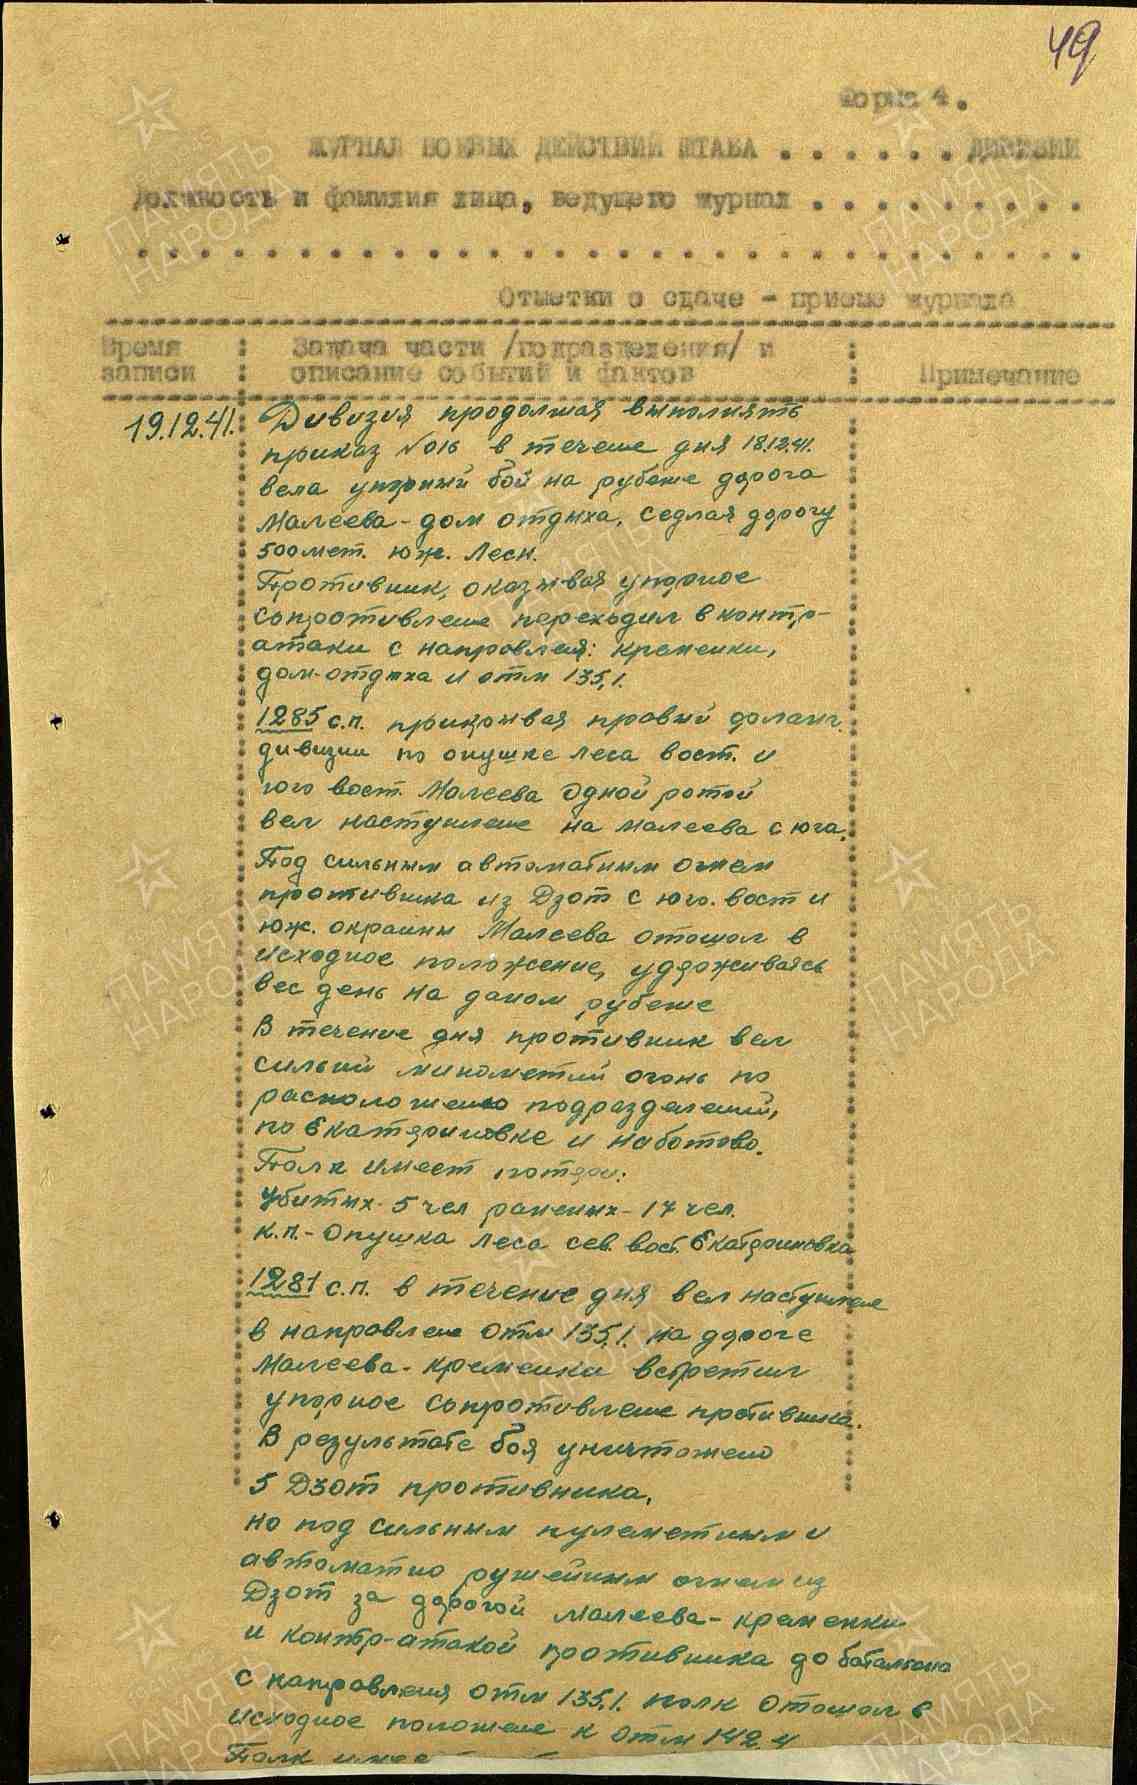 49
Форма 4.
ЖУРНАЛ БОЕВЫХ ДЕЙСТВИЙ ШТАБА . . . . . . ДИВИЗИИ
Должность и фамилия лица, ведущего журнал . . . . . . . . .
Отметки о сдаче - приеме журнала
Время : Задача части /подразделения/ и :
записи : описание событий и фактов : Примечание
19.12.41. Дивизия продолжая выполнять
приказ №016 в течение дня 18.12.41.
вела упорный бой на рубеже дорога
Малеева - дом отдыха, седлая дорогу
500 мет. юж. Лесн.
Противник, оказывая упорное
сопротивление переходил в контр-
атаки с направлен: Кременки,
дом-отдыха и отм 135,1.
1285 с.п. прикрывая правый фланг
дивизии по опушке леса вост. и
юго вост. Малеева одной ротой
вел наступление на Малеева с юга.
Под сильным автоматным огнем
противника из Дзот с юго. вост и
юж. окраины Малеева отошол в
исходное положение, удерживаясь
вес день на даном рубеже
В течение дня противник вел
сильный минометный огонь по
расположению подразделений,
по Екатериновке и Наботово.
Полк имеет потери:
Убитых - 5 чел раненых - 17 чел.
К.П. - Опушка леса сев. вост. Екатериновка
1281 с.п. в течение дня вел наступление
в направлен отм 135,1. на дороге
Малеева - Кременки встретил
упорное сопротивление противника.
В результате боя уничтожено
5 Дзот противника,
но под сильным пулеметным и
автоматно ружейным огнем из
Дзот за дорогой Малеева - Кременки
и контр-атакой противника до батальона
с направления отм 135,1. полк отошол в
исходное положение к отм 142.4
Полк имее
ПАМЯТЬ
НАРОДА